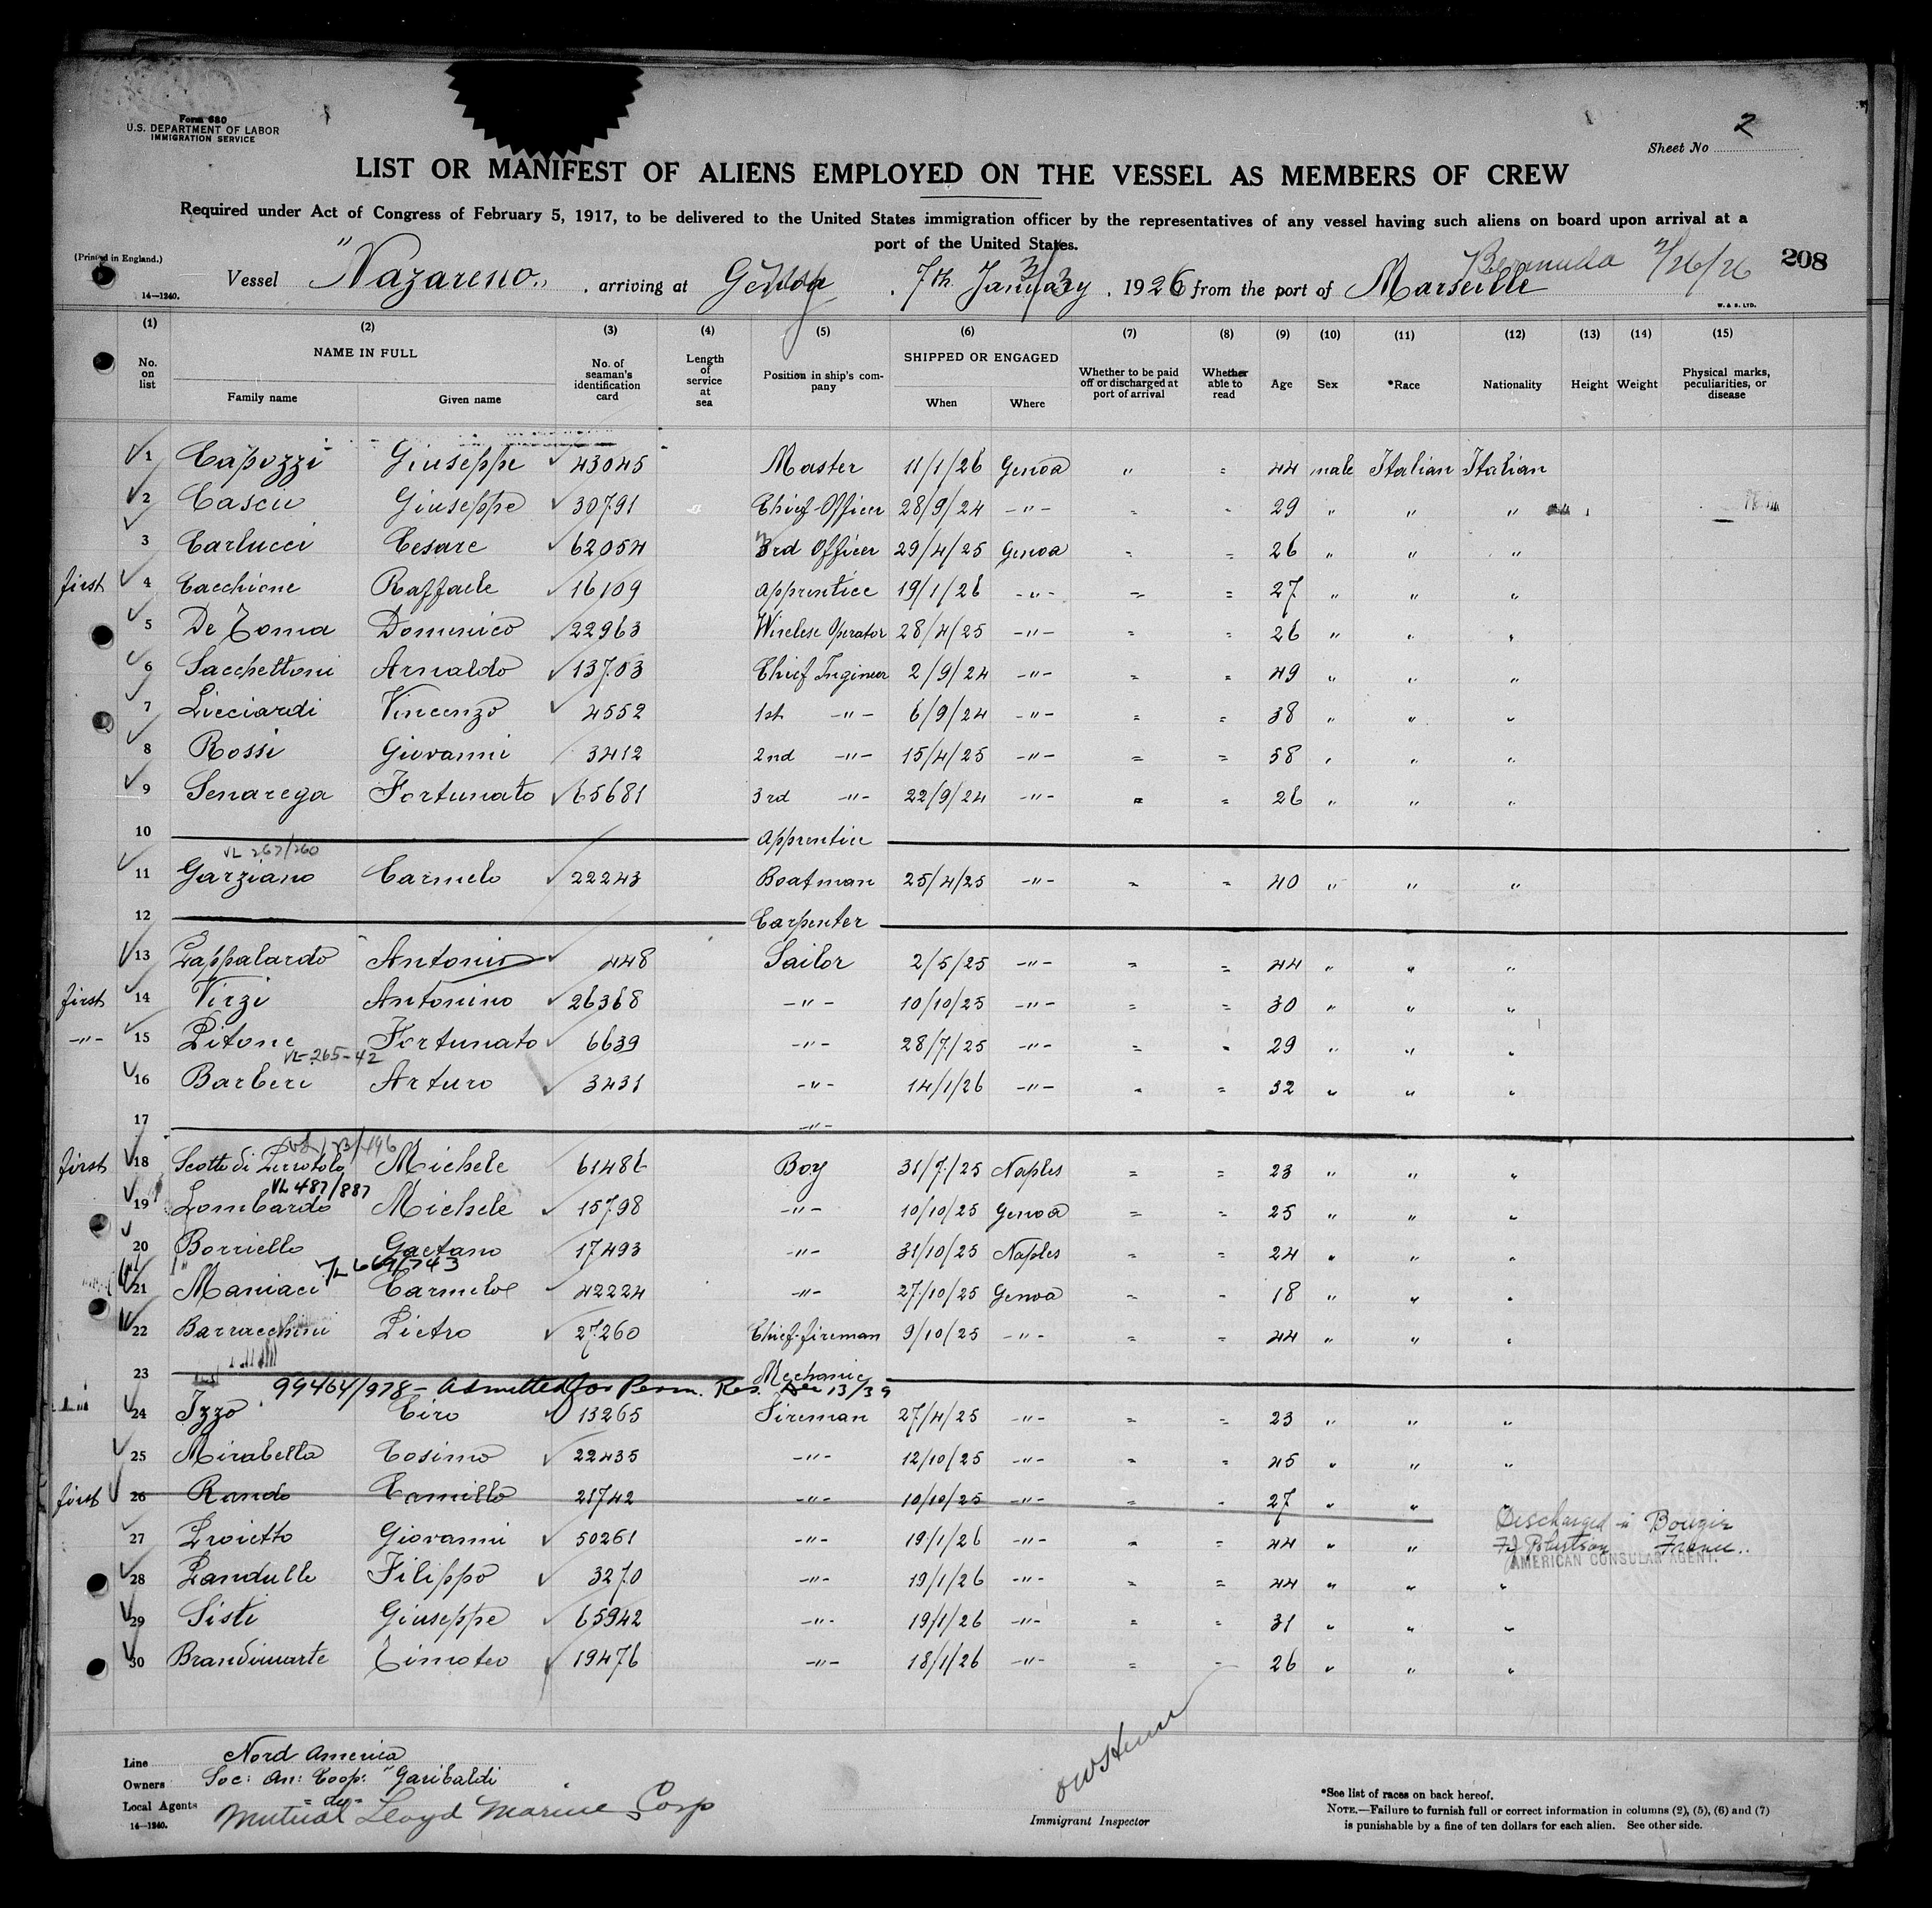 Form 680
U.S. DEPARTMENT OF LABOR
IMMIGRATION SERVICE
Sheet No 2
LIST OR MANIFEST OF ALIENS EMPLOYED ON THE VESSEL AS MEMBERS OF CREW
Required under Act of Congress of February 5, 1917, to be delivered to the United States immigration officer by the representatives of any vessel having such aliens on board upon arrival at a
port of the United States.
(Printed in England.)
Bermuda 2/26/26 208
Vessel "Nazareno" arriving at Genoa, 7th January, 1926 from the port of Marseille
14—1240. W. & S. LTD.
(1) (2) (3) (4) (5) (6) (7) (8) (9) (10) (11) (12) (13) (14) (15)
No. on list NAME IN FULL Family name Given name No. of seaman's identification card Length of service at sea Position in ship's company SHIPPED OR ENGAGED When Where Whether to be paid off or discharged at port of arrival Whether able to read Age Sex *Race Nationality Height Weight Physical marks, peculiarities, or disease
1 Capozzi Giuseppe 43045 Master 11/1/26 Genoa " = 44 male Italian Italian
2 Cascu Giuseppe 30791 Chief Officer 28/9/24 -"- = - 29 " " "
3 Carlucci Cesare 62054 3rd Officer 29/4/25 Genoa = = 26 " " "
first 4 Cacchione Raffaele 16109 Apprentice 19/1/26 -"- = = 27 " " "
5 De Toma Domenico 22963 Wirelese Operator 28/4/25 -"- = = 26 " " "
6 Sacchettoni Arnaldo 13703 Chief Ingineer 2/9/24 -"- = = 49 " " "
7 Licciardi Vincenzo 4552 1st -"- 6/9/24 -"- = = 38 " " "
8 Rossi Giovanni 3412 2nd -"- 15/4/25 -"- = = 58 " " "
9 Senarega Fortunato 65681 3rd -"- 22/9/24 -"- = = 26 " " "
10 Apprentice
VL 267/260
11 Garziano Carmelo 22243 Boatman 25/4/25 -"- = = 40 " " "
12 Carpenter
13 Pappalardo Antonio 448 Sailor 2/5/25 -"- = = 44 " " "
first 14 Virzi Antonino 26368 -"- 10/10/25 -"- = = 30 " " "
-"- 15 Pitone Fortunato 6639 -"- 28/7/25 -"- = = 29 " " "
VL-265-42
16 Barberi Arturo 3431 -"- 14/1/26 -"- = = 32 " " "
17 -"-
first 18 Scotto di Perrotolo Michele 61486 Boy 31/7/25 Naples = = 23 " " "
VL 487/887
19 Lombardo Michele 15798 -"- 10/10/25 Genoa = = 25 " " "
20 Borriello Gaetano 17493 -"- 31/10/25 Naples = = 24 " " "
21 Maniaci Carmelo 42224 -"- 27/10/25 Genoa = - 18 " " "
22 Barracchini Pietro 27260 Chief-fireman 9/10/25 -"- = = 44 " " "
23 Mechanic
99464/978 - Admitted for Perm. Res. Dec 13/39
24 Izzo Ciro 13265 Fireman 27/4/25 -"- = = 23 " " "
25 Mirabella Cosimo 22435 -"- 12/10/25 -"- = = 45 " " "
first 26 Rando Camillo 21742 -"- 10/10/25 -"- = - 27 " " "
Discharged in Bougie
27 Proietto Giovanni 50261 -"- 19/1/26 -"- = = 44 " "
France..
AMERICAN CONSULAR AGENT.
28 Pandullo Filippo 3270 -"- 19/1/26 -"- = = 44 " " "
29 Sisti Giuseppe 65942 -"- 19/1/26 -"- = = 31 " " "
30 Brandimarte Timoteo 19476 -"- 18/1/26 -"- = - 26 " " "
Line Nord America
Owners Soc: An: Coop: "Garibaldi
Local Agents Mutual Lloyd Marine Corp
14—1240.
Immigrant Inspector
*See list of races on back hereof.
NOTE.—Failure to furnish full or correct information in columns (2), (5), (6) and (7)
is punishable by a fine of ten dollars for each alien. See other side.